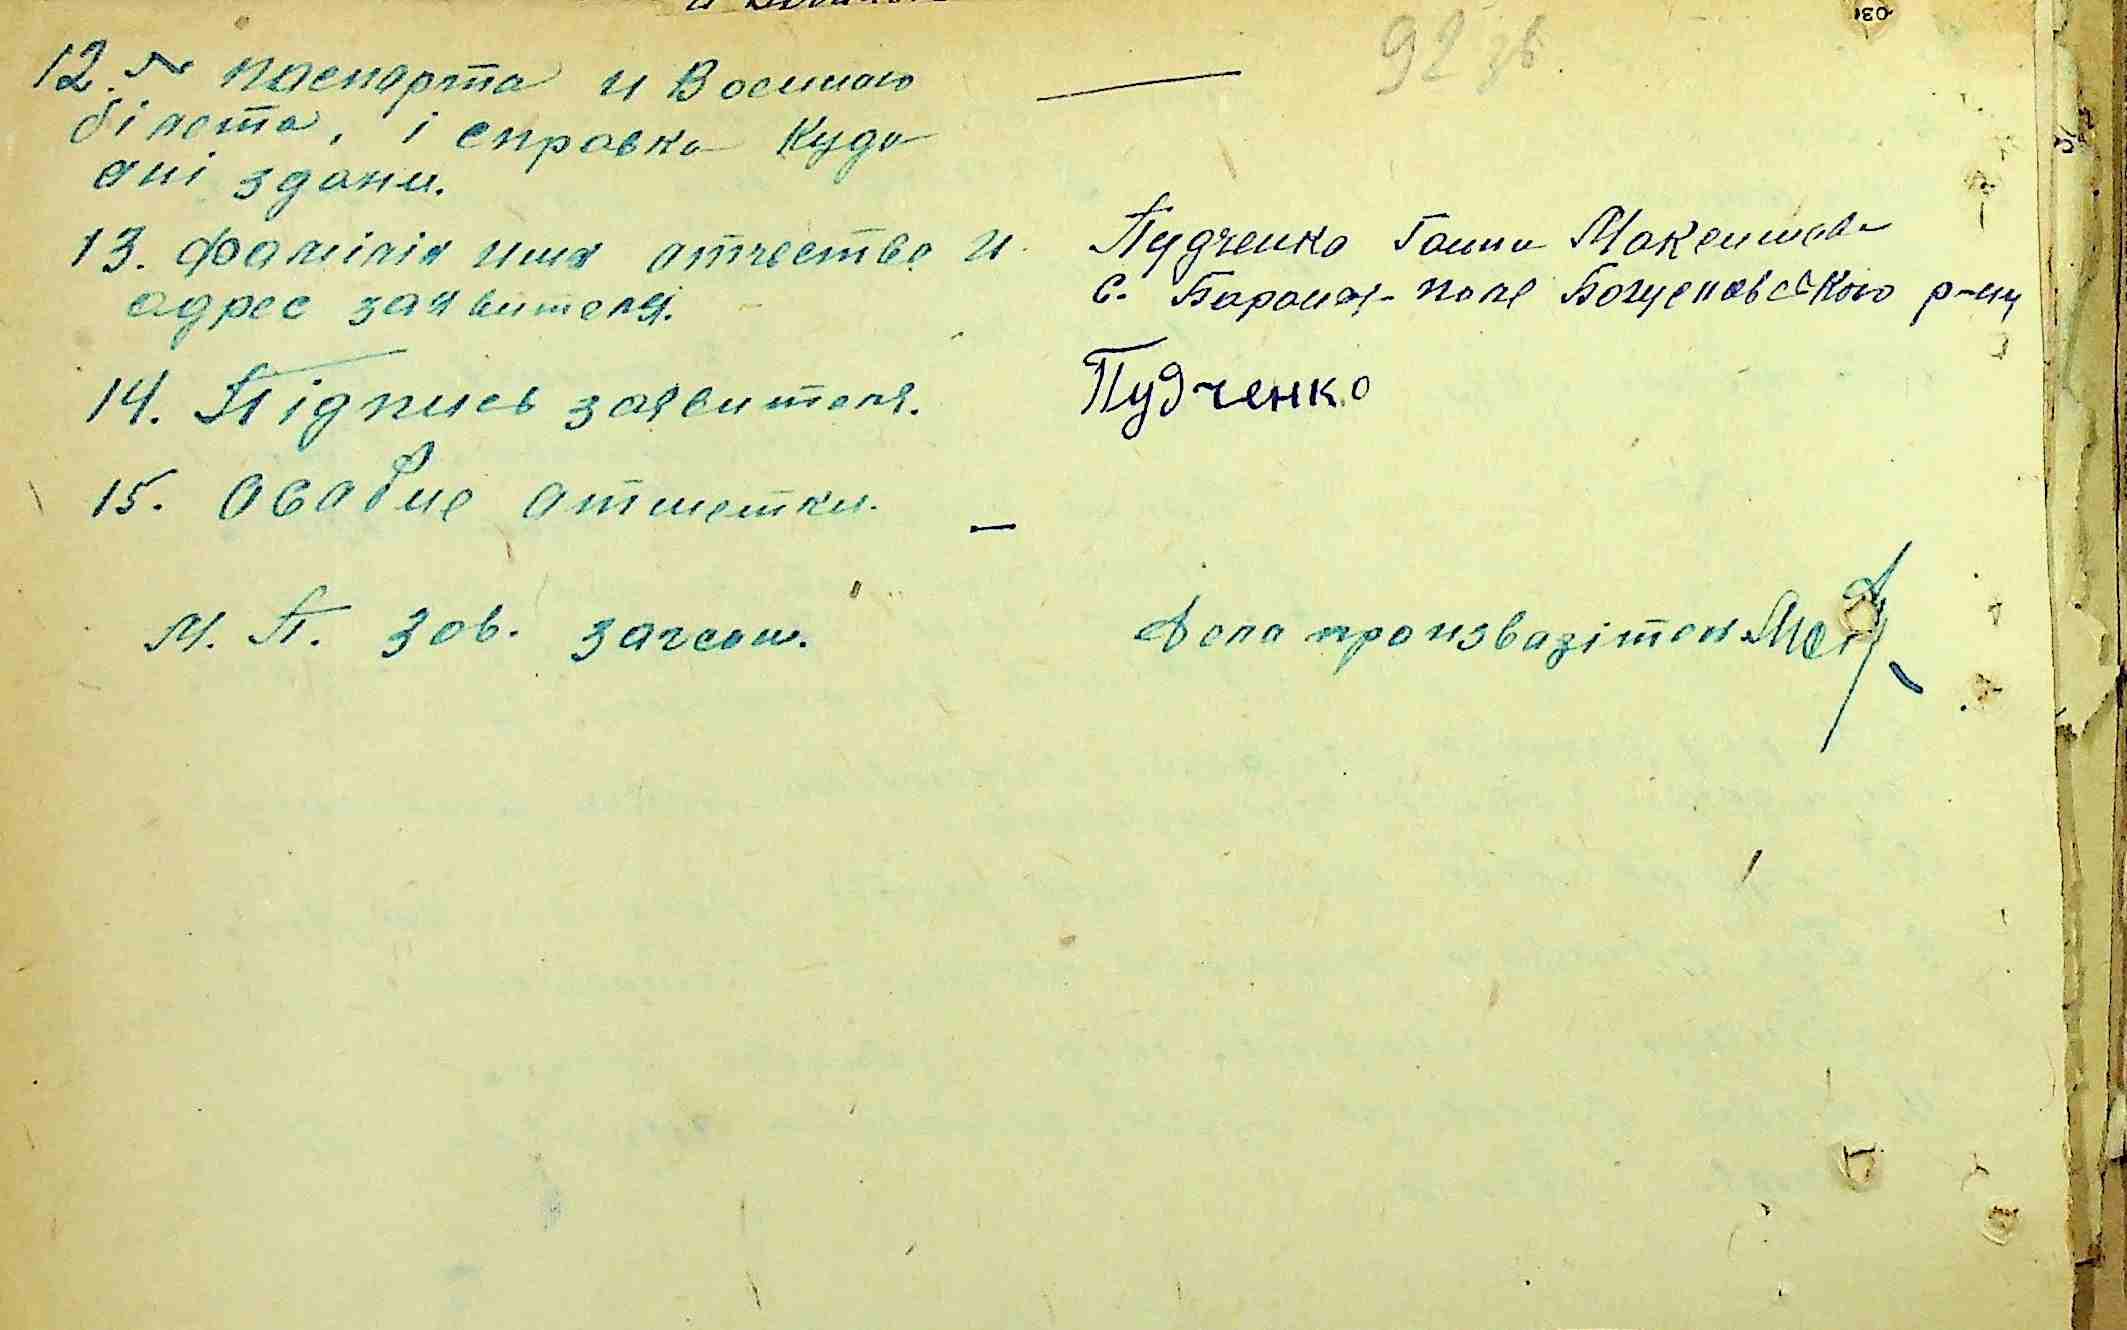 92 зв.
12. № паспорта и Военного
білета, і справка куда
ані здани.
13. Фамілія имя отчество и
адрес заявителя.
Пудченко Ганна Максимовна
с. Барочат-поле Божедаровського р-ну
14. Підпись заявителя.
Пудченко
15. Асабие отметки. —
М. П. Зав. загсом.
Дела произвазітель